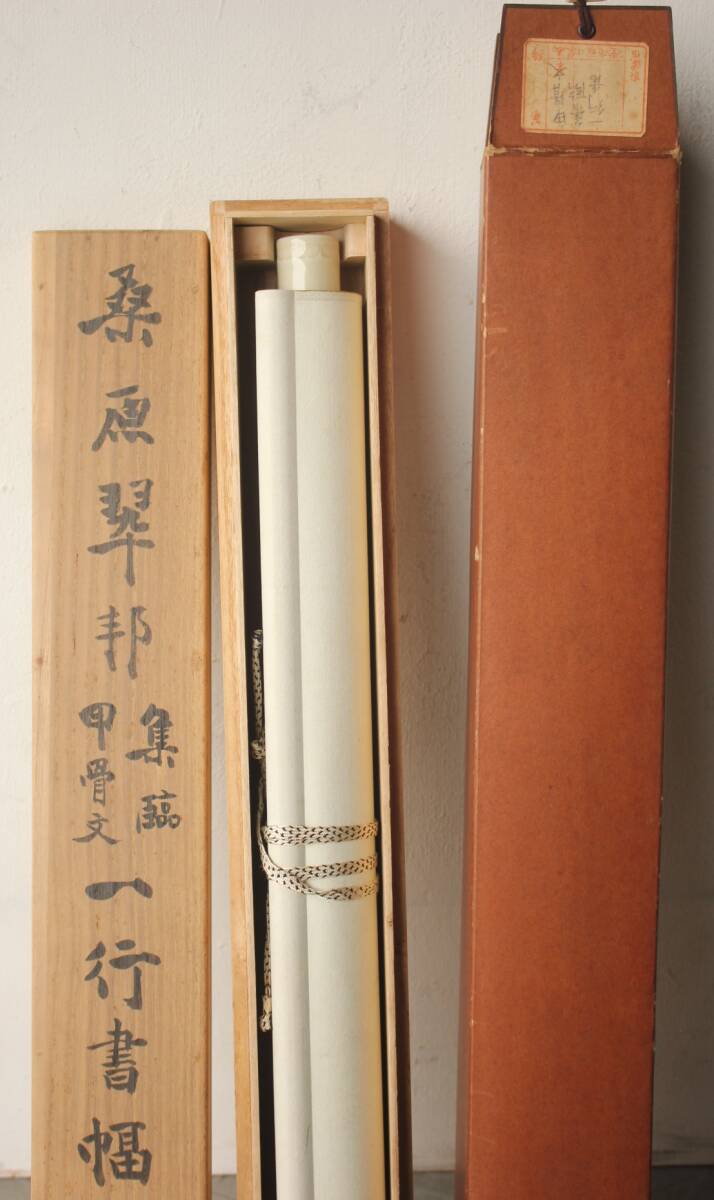 桑原翠邦
集臨
甲骨文
一行書幅